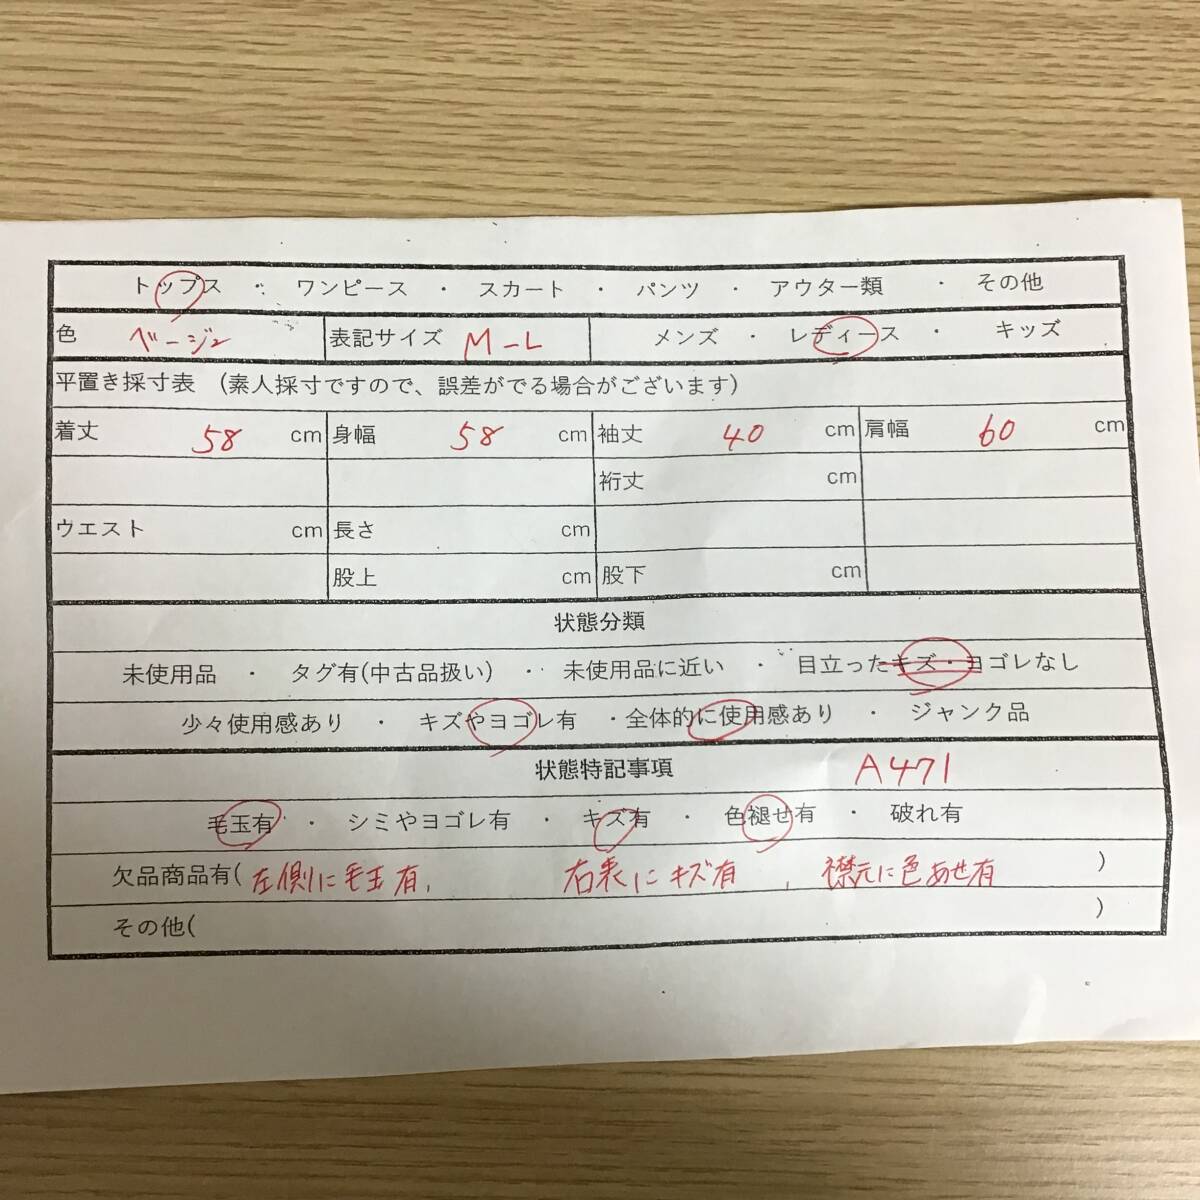 トップス ・ ワンピース ・ スカート ・ パンツ ・ アウター類 ・ その他
色 ベージュ 表記サイズ M-L メンズ ・ レディース ・ キッズ
平置き採寸表 （素人採寸ですので、誤差がでる場合がございます）
着丈 58 cm 身幅 58 cm 袖丈 40 cm 肩幅 60 cm
裄丈 cm
ウエスト cm 長さ cm
股上 cm 股下 cm
状態分類
未使用品 ・ タグ有(中古品扱い) ・ 未使用品に近い ・ 目立ったキズ・ヨゴレなし
少々使用感あり ・ キズやヨゴレ有 ・全体的に使用感あり ・ ジャンク品
状態特記事項 A471
毛玉有 ・ シミやヨゴレ有 ・ キズ有 ・ 色褪せ有 ・ 破れ有
欠品商品有( 左側に毛玉有, 右表にキズ有 , 襟元に色あせ有 )
その他( )